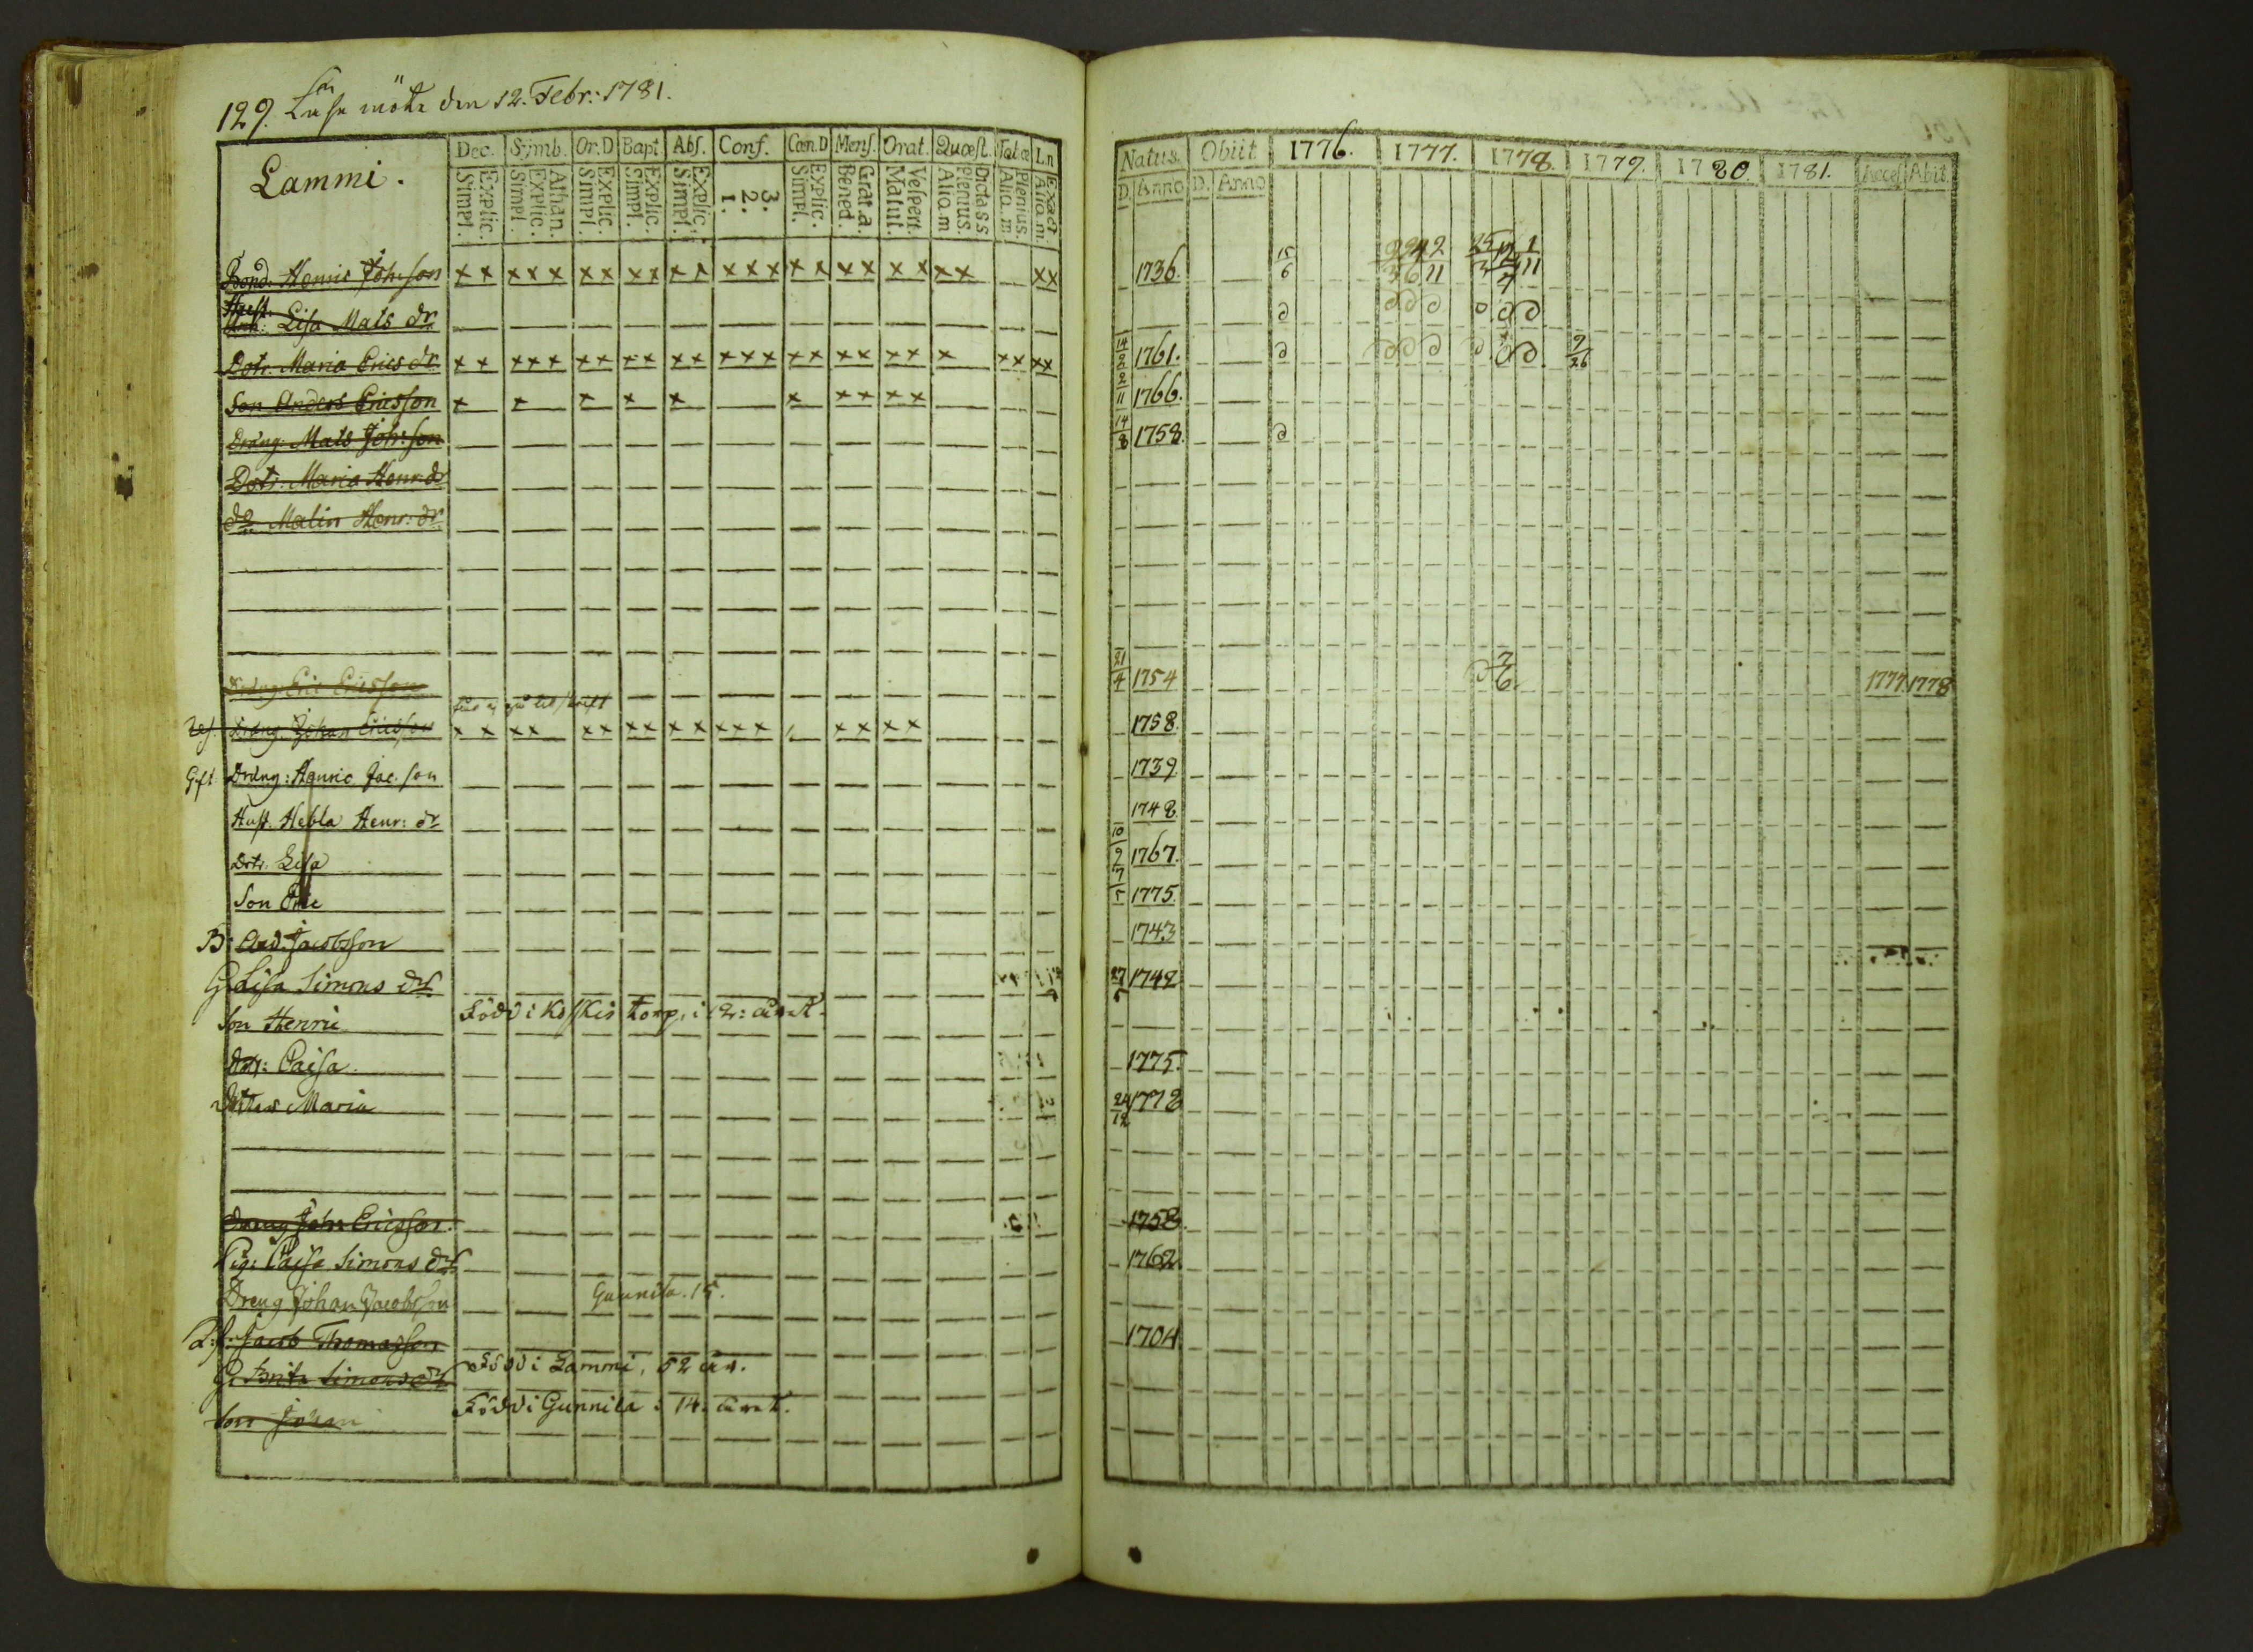 129. Läsa möte den 12. Febr: 1781.
Lammi.
Dec. Symb. Or.D Bapt Abs. Conf. Cœn.D Mens. Orat. Quæst. Tab.œ L.n
Explic. Simpl.
Athan. Explic. Simpl.
Explic. Simpl.
Explic. Simpl.
Explic. Simpl.
3. 2. 1.
Explic. Simpl.
Grat.a. Bened.
Vespert. Matut.
Dicta S S plenius. Aliq.m
Plenius. Aliq.m
Exact Aliq.m.
Natus. Obiit. 1776. 1777. 1778. 1779. 1780. 1781. Access Abit.
D. Anno D. Anno
Bond. Henric Joh:son x x x x x x x x x x x x x x x x x x x x x x x x x 1736. 15/6
Lisa Mats dr
Dotr. Maria Erics dr. x x x x x x x x x x x x x x x x x x x x x x x x x x 14/2 1761. 9/26
Son Anders Ericsson x x x x x x x x x x 2/11 1766.
Dräng. Mats Joh:son 14/8 1758.
Dotr. Maria Henr: dr
do Malin Henr: dr
Dräng: Eric Ericsson 21/4 1754 1777. 1778
Dräng. Johan Ericsson x x x x x x x x x x x x x x x x x 1758.
Gift Dräng: Henric Jac. son 1739.
Hust. Hebla Henr: dr 1748.
Dotr. Lisa 10/9 1767.
Son Eric 7/5 1775.
B: And. Jacobsson 1743
G. Lisa Simons dr 27/5 1742
Son Henric Född i Koskis torp, i 12: året.
dotr: Caisa 1775.
Dotter Maria 24/12 1778
Dreng Joh: Ericsson. 1758.
Pig: Caisa Simons dr 1762.
Dreng Johan Jacobsson Gunnila. 15.
Jacob Thomasson 1704
G. Brita Simonsdr Född i Lammi, 52 år.
Son Johan Född i Gunnila i 14. året.